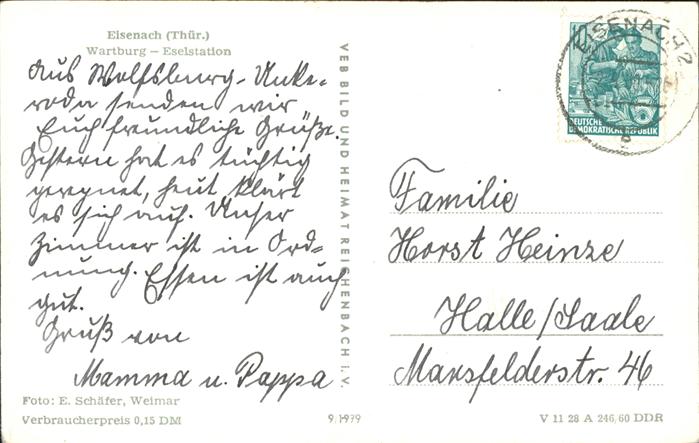 Eisenach (Thür.)
Wartburg – Eselstation
Aus Wolfsburg-Unke-
roda senden wir
Euch freundliche Grüße.
Gestern hat es tüchtig
geregnet, heut klärt
es sich auf. Unser
Zimmer ist in Ord-
nung. Essen ist auch
gut.
Gruß von
Mamma u. Pappa
Foto: E. Schäfer, Weimar
Verbraucherpreis 0,15 DM
VEB BILD UND HEIMAT REICHENBACH i. V.
9/1979
EISENACH 2
10
DEUTSCHE
DEMOKRATISCHE REPUBLIK
Familie
Horst Heinze
Halle/Saale
Mansfelderstr. 46
V 11 28 A 246/60 DDR